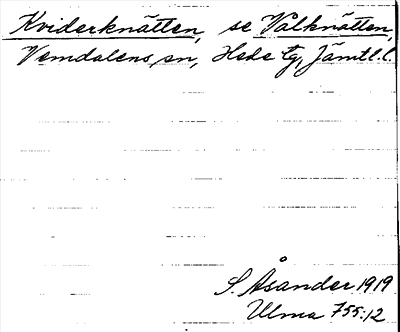 Kviderknätten, se Valknätten,
Vemdalens sn, Hede tg, Jämtl. l.
S. Åsander 1919
Ulma 755:12